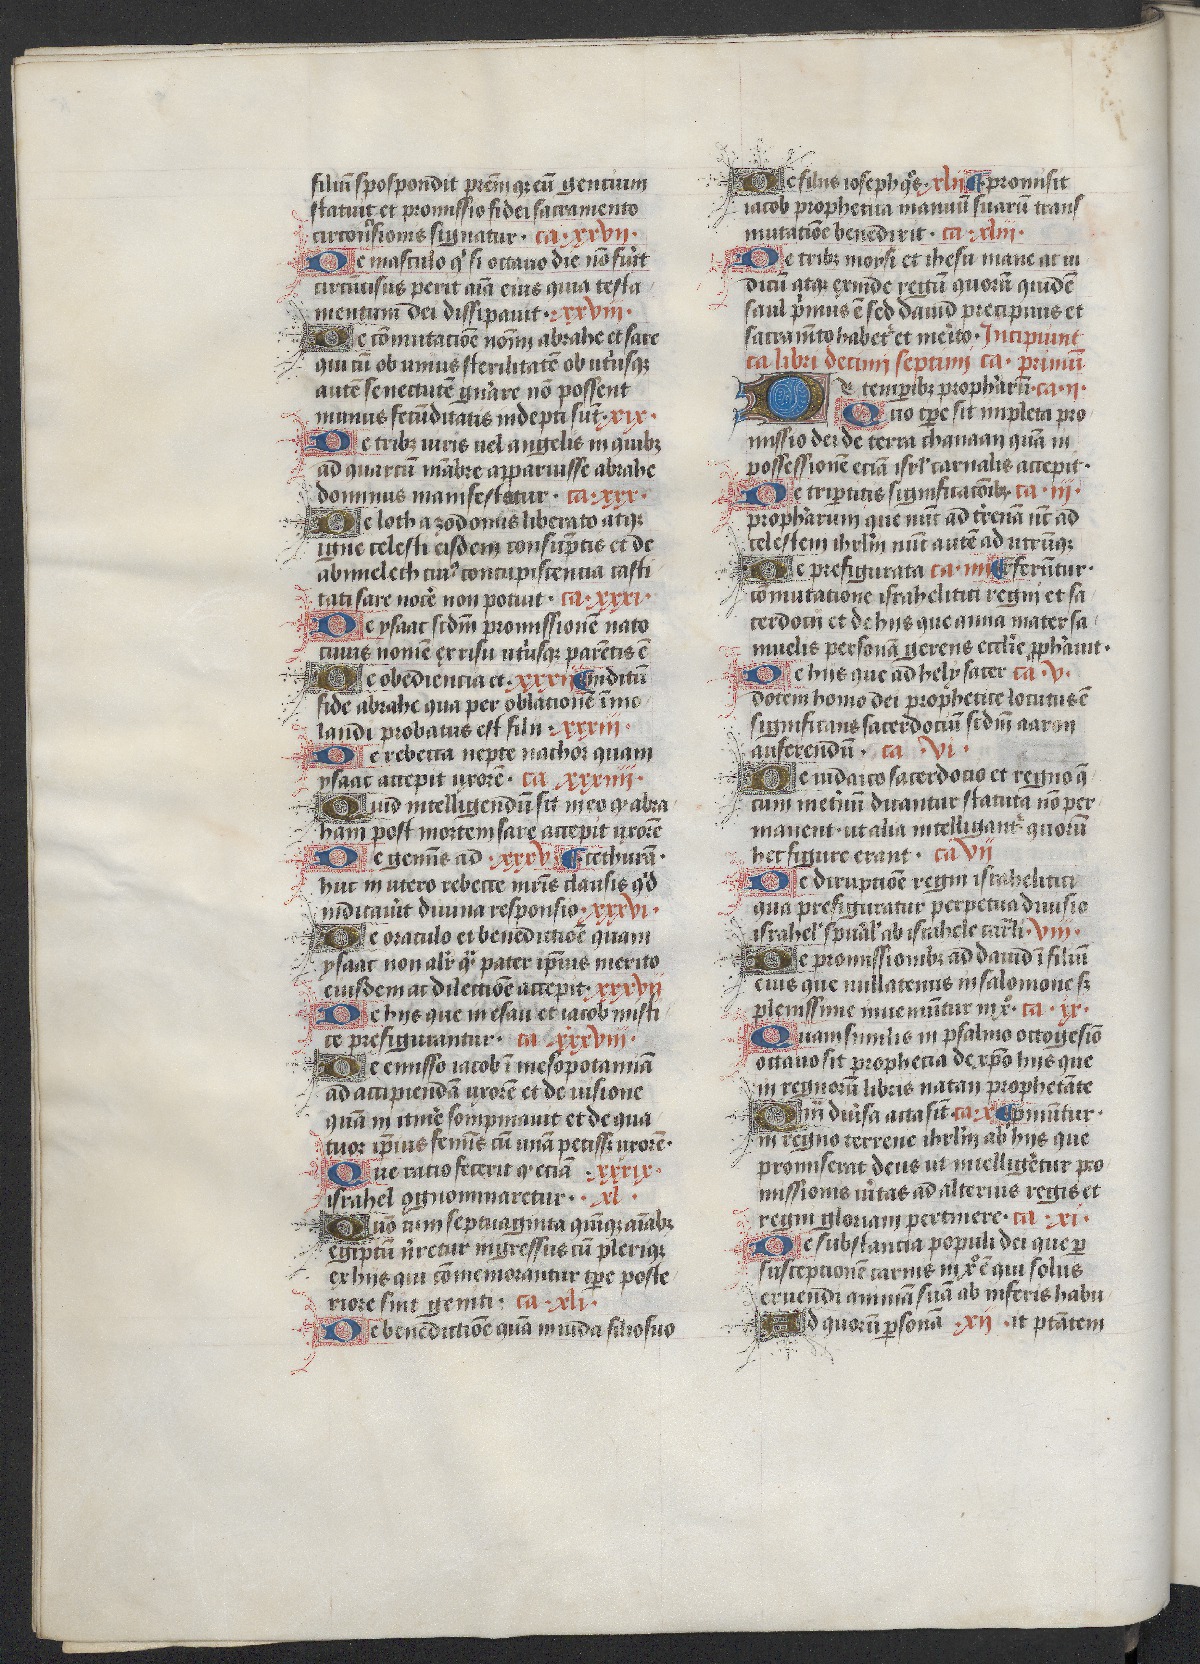 filiū spospondit prēm qꝫ eū gencium
statuit et promissio fidei sacramento
circōcisionis signatur · ca · xxvii ·
De masculo q̓ si octauo die nō fūit
circūcisus perit aīa eius quia testa
mentum dei dissipauit · xxviii ·
De cōmutacōe noīm abrahe et sare
qui cū ob unius sterilitatē ob utriusqꝫ
autē senectutē gn̄are nō possent
munus fecūditatis indepti sūt · xix ·
De tribꝫ uiris uel angelis in quibꝫ
ad quartū mābre apparuisse abrahe
dominus manifestatur · ca · xxx ·
De loth a zodomis liberato atqꝫ
igne celesti eisdem consūptis et de
abimelech cuiꝰ concupiscencia casti
tati sare nocē non potuit · ca · xxxi ·
De ysaac sc̄dm promissionē nato
cuius nomē ex risu utriusqꝫ parētis ē
De obediencia et · xxxii ¶ inditū
fide abrahe qua per oblationē īmo
landi probatus est filii · xxxiii ·
De rebecca nepte nachor quam
ysaac accepit uxorē · ca xxxiiii ·
Quid intelligendū sit in eo qꝫ abra
ham post mortem sare accepit uxorē
De geminis ad · xxxv ¶ cethuram ·
huc in utero rebecce mr̄is clausis q̓d
indicauit diuina responsio · xxxvi ·
De oraculo et benedictiōe quam
ysaac non alit̓ q̄ pater ip̄ius merito
eiusdem ac dilectiōe accepit · xxxvii
De hijs que in esau et iacob misti
ce prefigurantur · ca xxxviii ·
De emisso iacob ī mesopotamiā
ad accipiendā uxorē et de uisione
quā in itinē sompniauit et de qua
tuor ip̄ius feminis cū unā petisset uxorē ·
Que ratio fecerit q̓ eciā · xxxix ·
israhel cognominaretur · · xl ·
Quō cum septuaginta quinqꝫ aīabꝫ
egiptū iacob referatur ingressus cū plerique
ex hijs qui cōmemorantur tp̄e poste
riore sint geniti · ca · xli ·
De benedictiōe quā in iuda filio suo
De filiis ioseph q̓s · xlii ¶ promisit
iacob prophetica manuū suarū trans
mutatiōe benedixit · ca · xliii ·
De tribꝫ moysi et ihesu naue ac iu
dicū atqꝫ exinde regū quorū quidē
saul primus ē sed dauid precipuus et
sacramēto habetur et merito · Incipiunt
ca libri decimi septimi ca · primū
De temporibꝫ prophetarū · ca · ii ·
Quo tp̄e sit impleta pro
missio dei de terra chanaan quā in
possessionē eciā isrl̄ carnalis accepit ·
De tripertitis significacōibꝫ ca · iii ·
prophetarum que nūc ad terrenā nūc ad
celestem ihrlm̄ nūc autē ad utrūqꝫ
De prefigurata ca · iiii ¶ referūtur ·
cōmutatione israhelitici regni et sa
cerdocii et de hijs que anna mater sa
muelis personā gerens ecclesie prophetauit ·
De hijs que ad hely sacer ca · v ·
dotem homo dei prophetice locutus ē
significans sacerdociū sc̄dm aaron
auferendū · ca · vi ·
De iudaico sacerdocio et regno q̄
cum in eternū dicantur statuta nō per
manent · ut alia intelligantur quorū
hec figure erant · ca vii
De diruptiōe regni israhelitici
qua prefiguratur perpetua diuisio
israhel̓ spūal̓ ab israhele carnali · viii ·
De promissionibꝫ ad dauid ī filiū
eius que nullatenus in salomone sꝫ
plenissime inueniūtur in xp̄o · ca · ix ·
Quam similis in psalmo octogesiō
octauo sit prophecia de xp̄o hijs que
in regnorū libris natan prophetāte
Qm̄ diuersa acta sūt ca · x ¶ promittūtur ·
in regno terrene ihrlm̄ ab hijs que
promiserat deus ut intelligeretur pro
missionis ueritas ad alterius regis et
regni gloriam pertinere · ca · xi ·
De substancia populi dei que per
susceptionē carnis in xp̄o ē qui solus
eruendi animā suā ab inferis habu
Ad quorū personā · xii · it potestatem